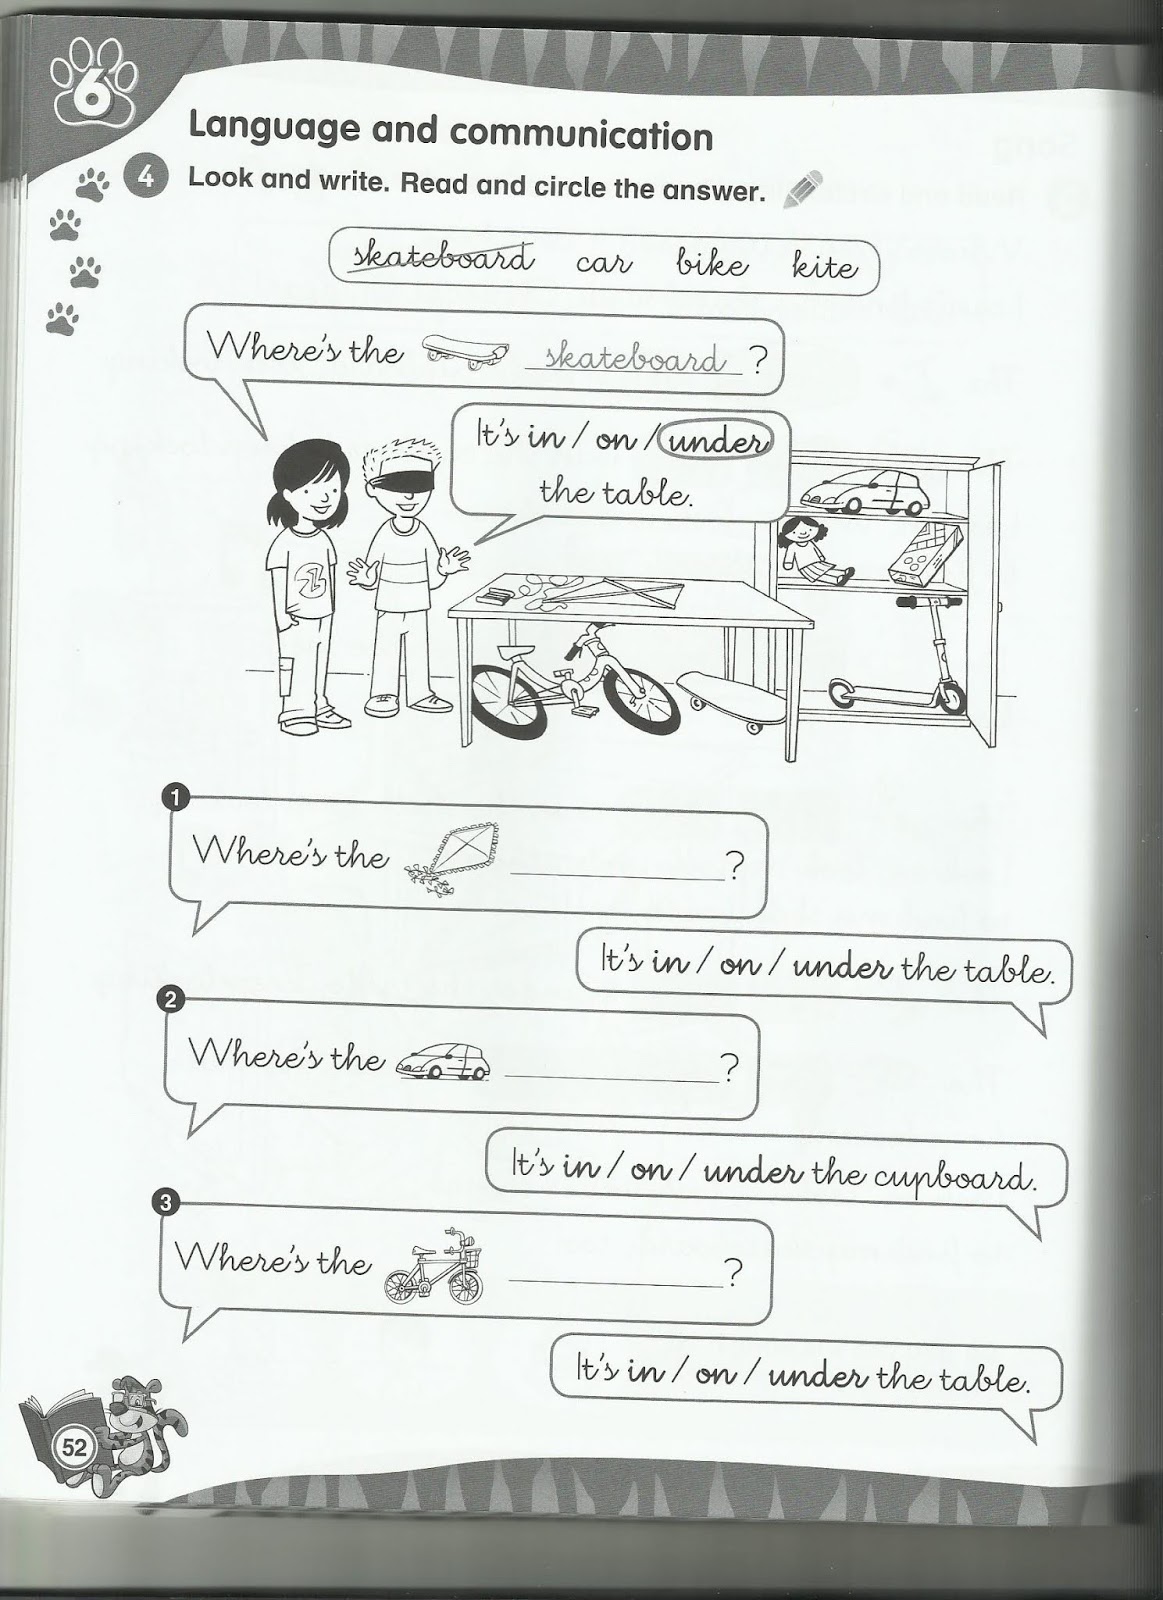 6
Language and communication
4 Look and write. Read and circle the answer.
skateboard car bike kite
Where's the skateboard ?
It's in / on / under
the table.
1
Where's the ?
It's in / on / under the table.
2
Where's the ?
It's in / on / under the cupboard.
3
Where's the ?
It's in / on / under the table.
52